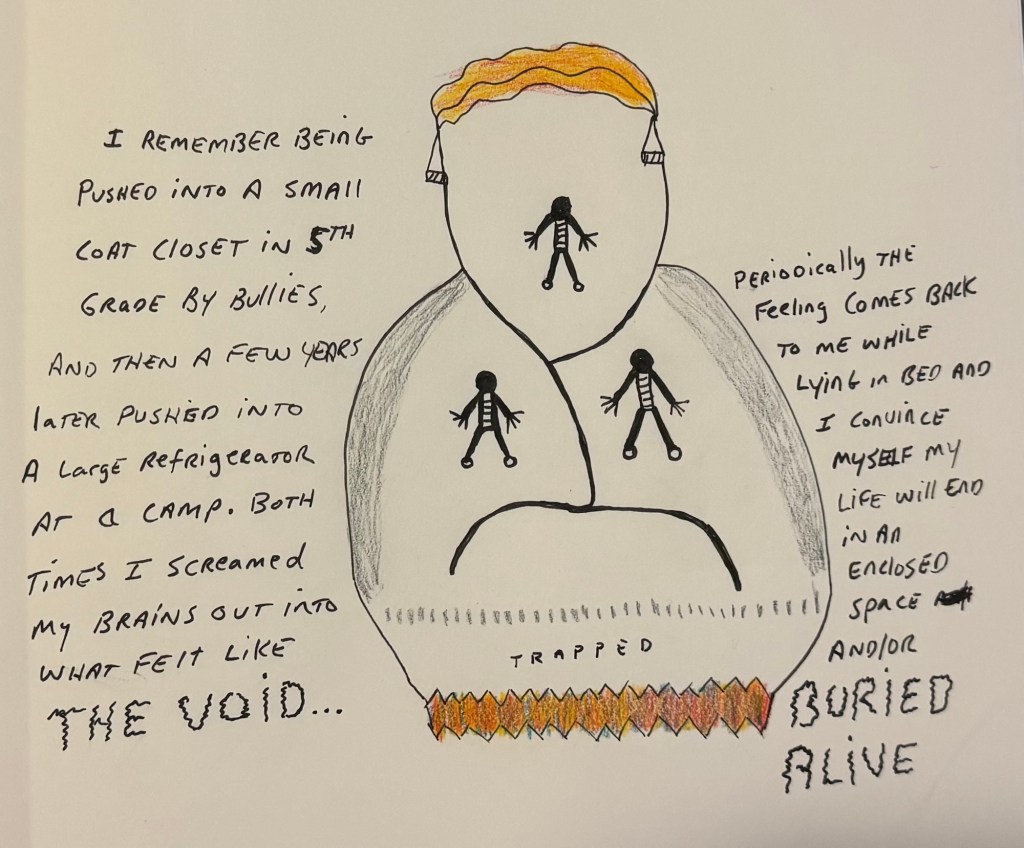 I REMEMBER BEING
PUSHED INTO A SMALL
COAT CLOSET IN 5TH
GRADE BY BULLIES,
AND THEN A FEW YEARS
LATER PUSHED INTO
A LARGE REFRIGERATOR
AT A CAMP. BOTH
TIMES I SCREAMED
MY BRAINS OUT INTO
WHAT FELT LIKE
THE VOID...
TRAPPED
PERIODICALLY THE
FEELING COMES BACK
TO ME WHILE
LYING IN BED AND
I CONVINCE
MYSELF MY
LIFE WILL END
IN AN
ENCLOSED
SPACE
AND/OR
BURIED
ALIVE